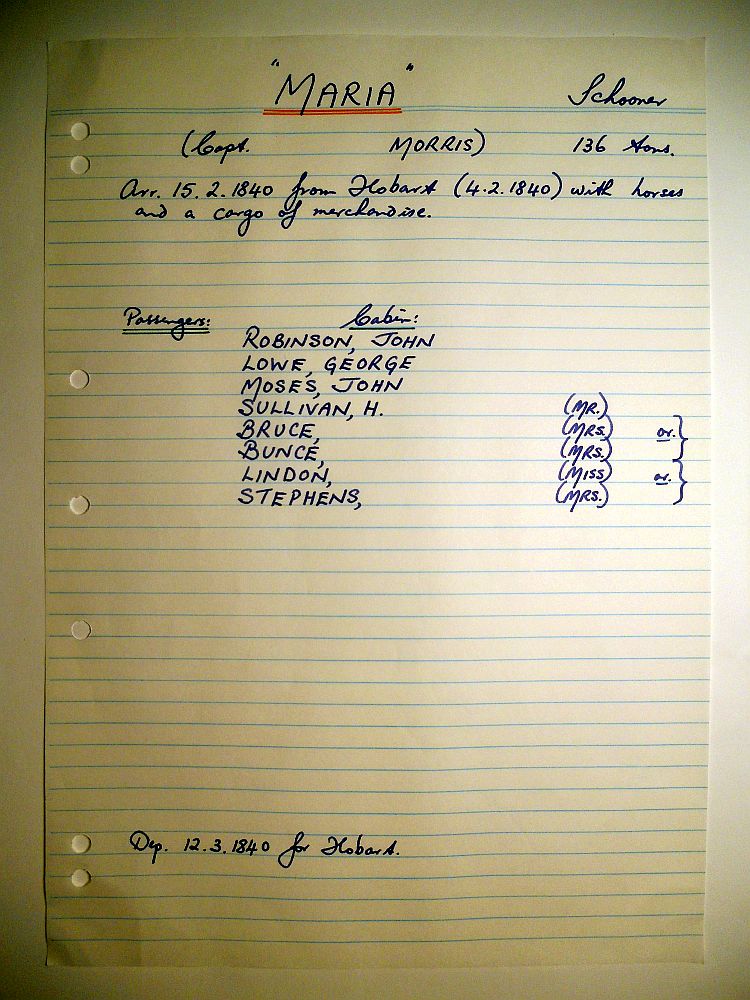 "MARIA" Schooner
(Capt. MORRIS) 136 tons.
Arr. 15.2.1840 from Hobart (4.2.1840) with horses
and a cargo of merchandise.
Passengers: Cabin:
ROBINSON, JOHN
LOWE, GEORGE
MOSES, JOHN
SULLIVAN, H. (MR.)
BRUCE, (MRS.) or. }
BUNCE, (MRS.)
LINDON, (MISS) or. }
STEPHENS, (MRS.)
Dep. 12.3.1840 for Hobart.